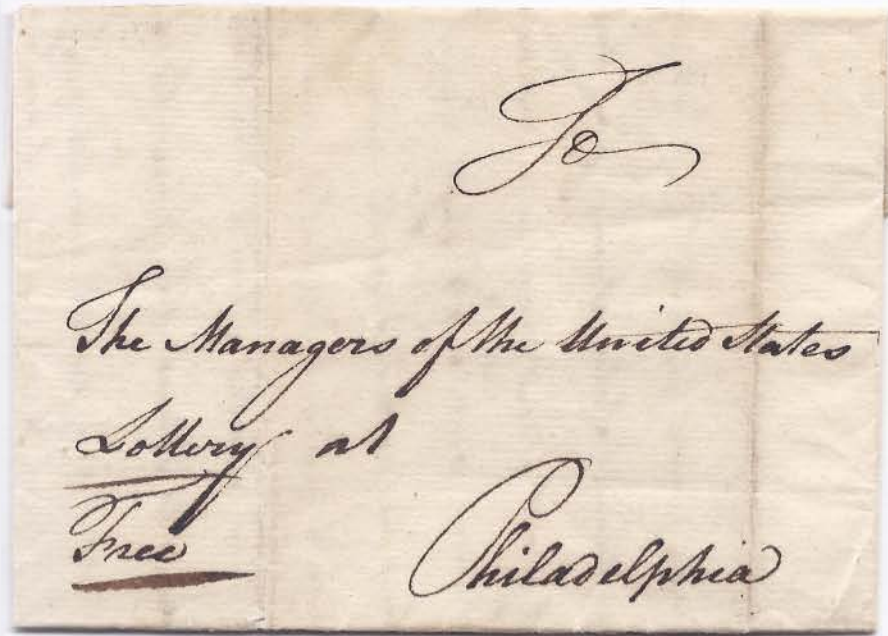 To
The Managers of the United States
Lottery at
Free
Philadelphia